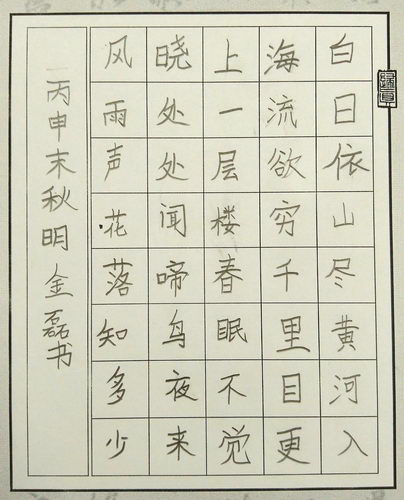 白日依山尽黄河入
海流欲穷千里目更
上一层楼春眠不觉
晓处处闻啼鸟夜来
风雨声花落知多少
丙申末秋明金磊书